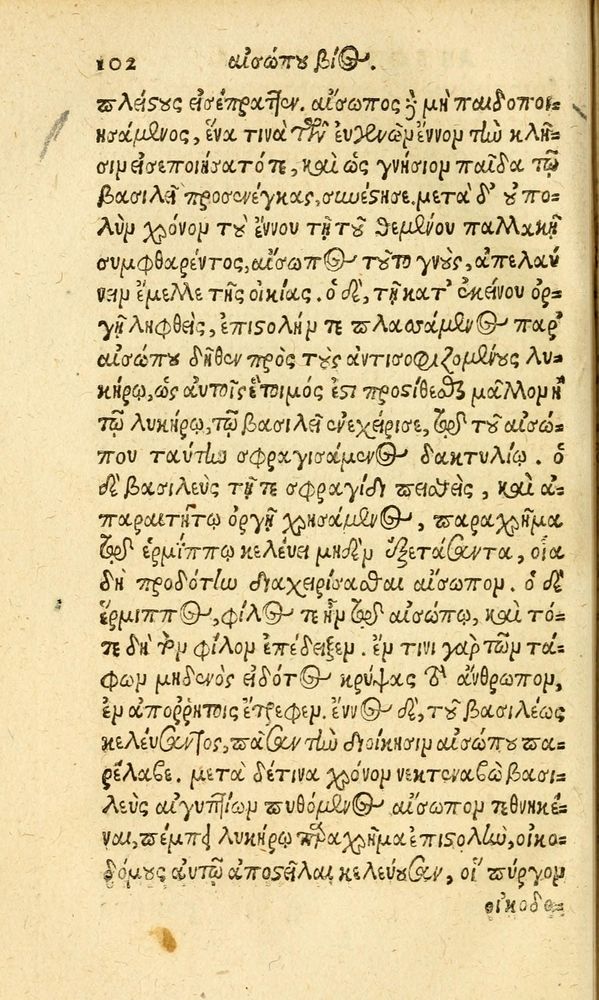 102 αἰσώπου βίος.
πλείους εἰσέπραττεν. αἴσωπος δὲ μὴ παιδοποι-
ησάμενος, ἕνα τινὰ τῶν εὐγενῶν ἔννον τὴν κλῆ-
σιν εἰσεποιήσατό τε, καὶ ὡς γνήσιον παῖδα τῷ
βασιλεῖ προσενέγκας, συνέστησε. μετὰ δ' οὐ πο-
λὺν χρόνον τοῦ ἔννου τῇ τοῦ θεμένου παλλακῇ
συμφθαρέντος, αἴσωπος τοῦτο γνοὺς, ἀπελαύ-
νειν ἔμελλε τῆς οἰκίας. ὁ δὲ, τῇ κατ' ἐκείνου ὀρ-
γῇ ληφθεὶς, ἐπιστολήν τε πλασάμενος παρ'
αἰσώπου δῆθεν πρὸς τοὺς ἀντισοφιζομένους λυ-
κήρῳ, ὡς αὐτοῖς ἕτοιμός ἐστι προστίθεσθαι μᾶλλον ἢ
τῷ λυκήρῳ, τῷ βασιλεῖ ἐνεχείρισε, τῷ τοῦ αἰσώ-
που ταύτην σφραγισάμενος δακτυλίῳ. ὁ
δὲ βασιλεὺς τῇ τε σφραγῖδι πεισθεὶς, καὶ ἀ-
παραιτήτῳ ὀργῇ χρησάμενος, παραχρῆμα
τῷ ἑρμίππῳ κελεύει μηδὲν ἐξετάσαντα, οἷα
δὴ προδότην διαχειρίσασθαι αἴσωπον. ὁ δὲ
ἕρμιππος, φίλος τε ἦν τῷ αἰσώπῳ, καὶ τό-
τε δὴ τὸν φίλον ἐπέδειξεν. ἔν τινι γὰρ τῶν τά-
φων μηδενὸς εἰδότος κρύψας τὸν ἄνθρωπον,
ἐν ἀπορρήτοις ἔτρεφεν. ἔννος δὲ, τοῦ βασιλέως
κελεύσαντος, πᾶσαν τὴν διοίκησιν αἰσώπου πα-
ρέλαβε. μετὰ δέ τινα χρόνον νεκτεναβὼ βασι-
λεὺς αἰγυπτίων πυθόμενος αἴσωπον τεθνηκέ-
ναι, πέμπει λυκήρῳ παραχρῆμα ἐπιστολὴν, οἰκο-
δόμους αὐτῷ ἀποστεῖλαι κελεύουσαν, οἳ πύργον
οἰκοδο-